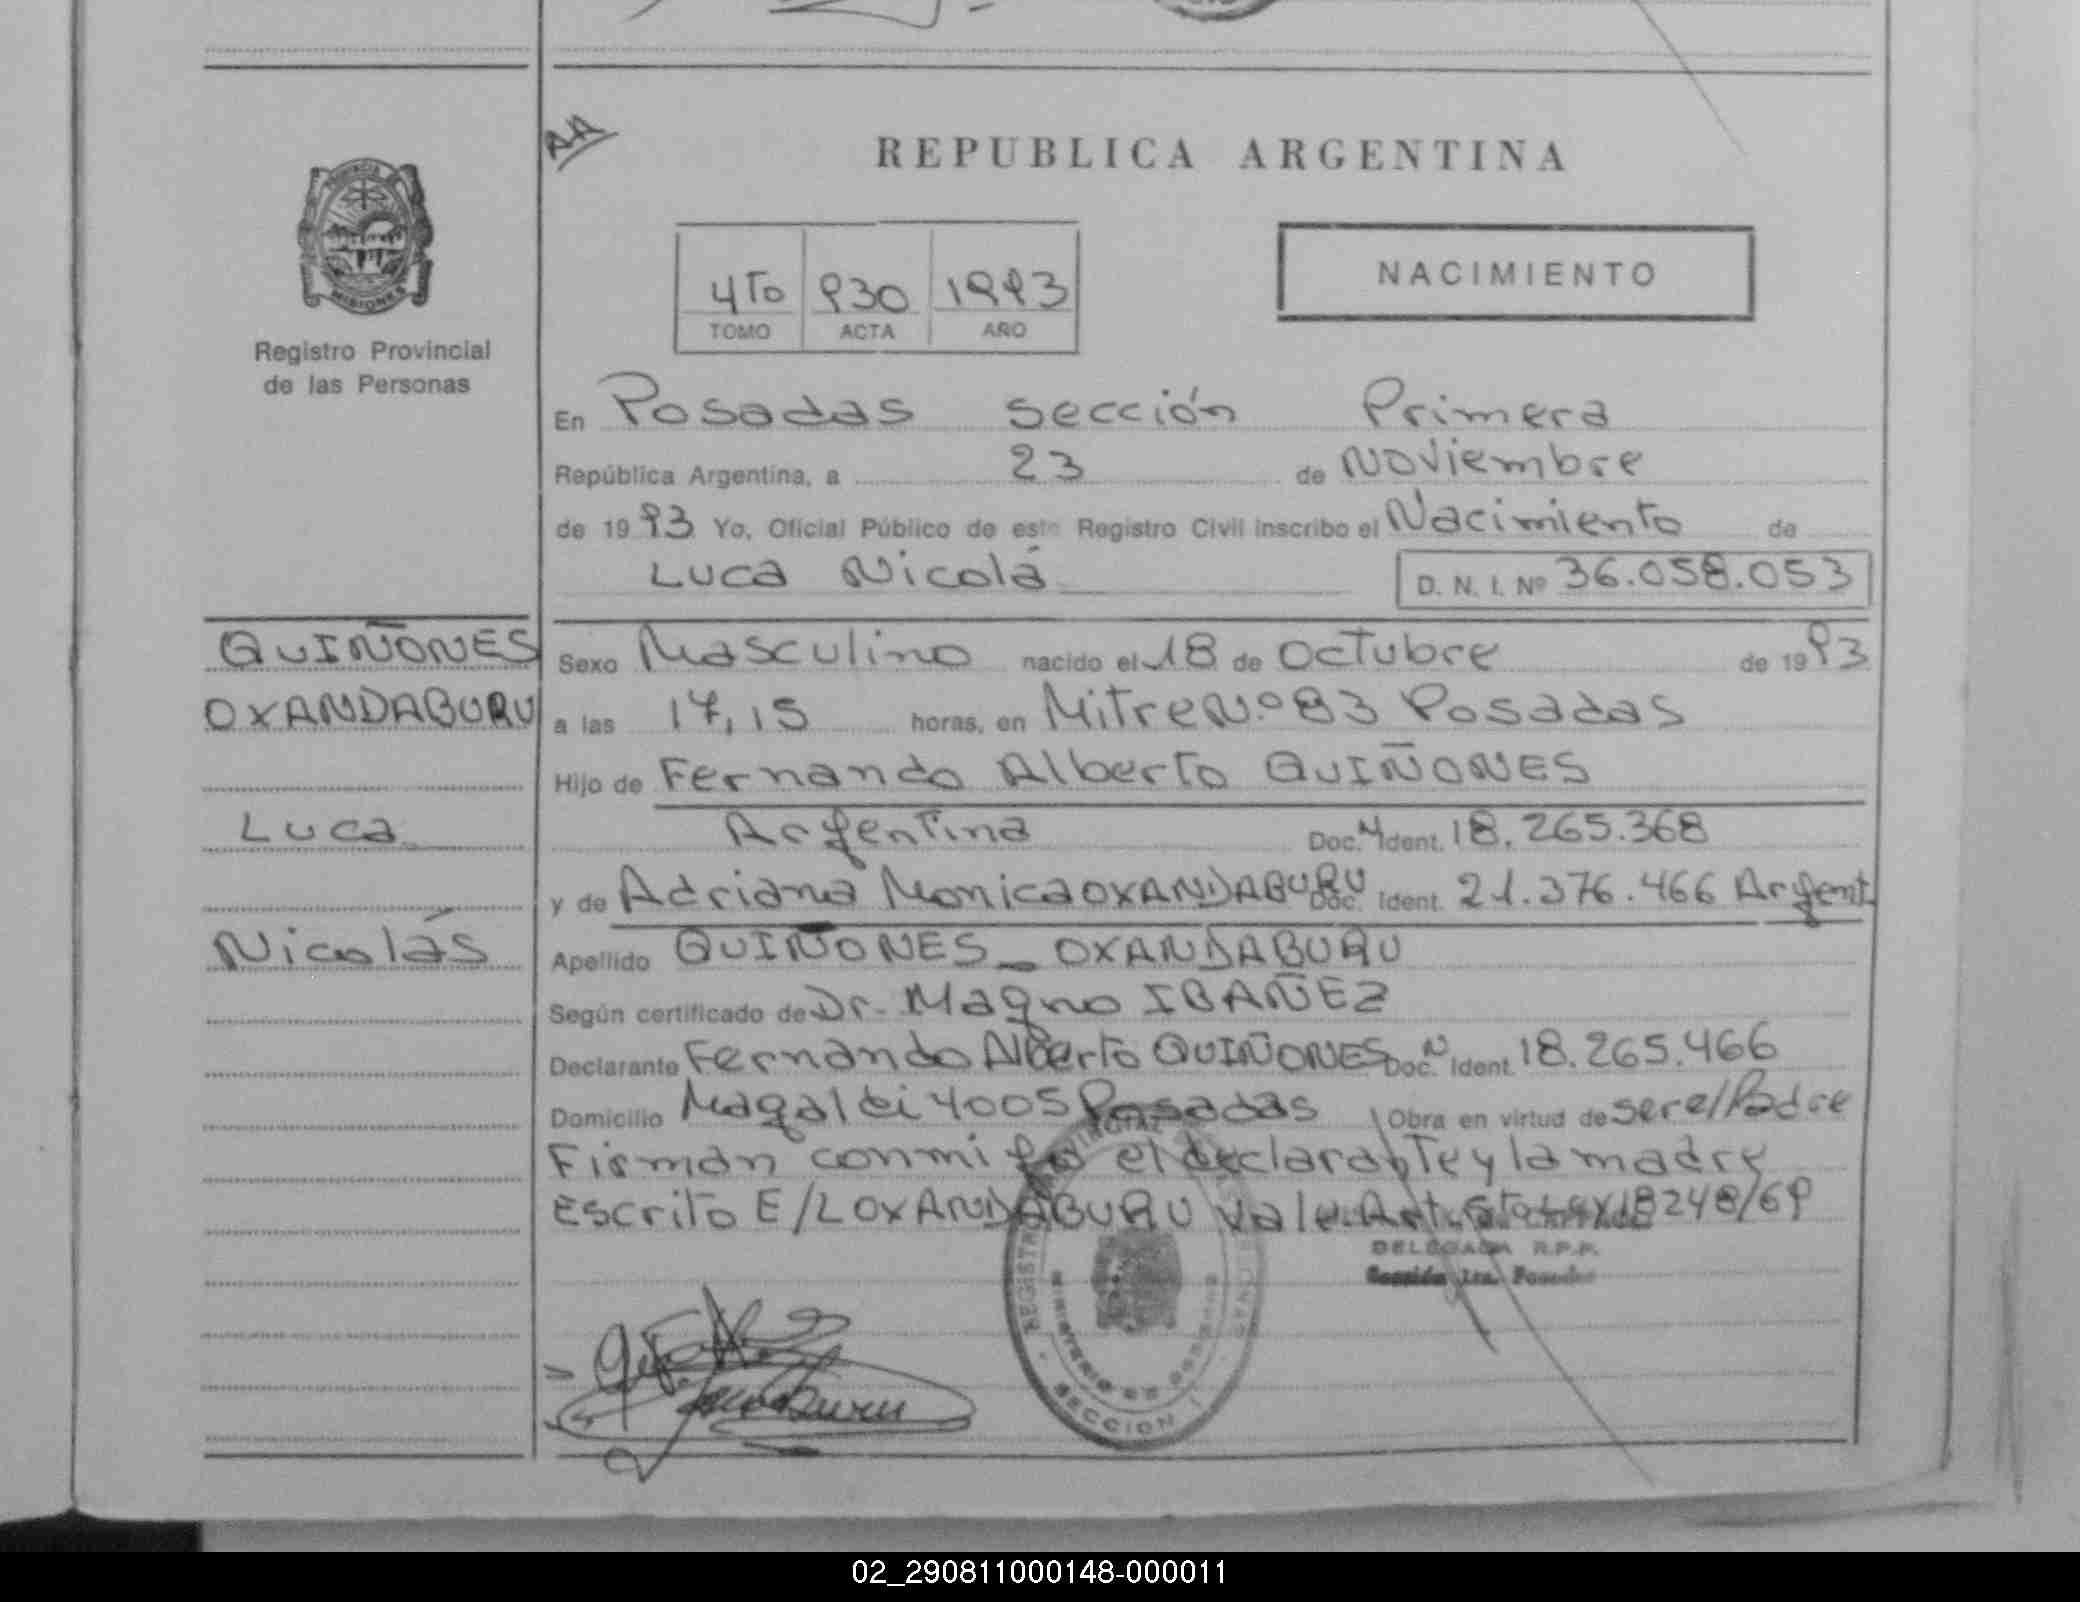 AA
REPUBLICA ARGENTINA
NACIMIENTO
4To 930 1993
TOMO ACTA AÑO
Registro Provincial
de las Personas
En Posadas sección Primera
República Argentina, a 23 de Noviembre
de 1993 Yo, Oficial Público de este Registro Civil inscribo el Nacimiento de
Luca Nicolá D. N. I. Nº 36.058.053
QUIÑONES
OXANDABURU
Luca
Nicolás
Sexo Masculino nacido el 18 de Octubre de 1993
a las 17,15 horas, en Mitre N.º 83 Posadas
Hijo de Fernando Alberto QUIÑONES
Argentina Doc. N Ident. 18.265.368
y de Adriana Monica OXANDABURU Doc. Ident. 21.376.466 Argent.
Apellido QUIÑONES_OXANDABURU
Según certificado de Dr. Magno IBAÑEZ
Declarante Fernando Alberto QUIÑONES Doc. N Ident. 18.265.466
Domicilio Magaldi 4005 Posadas Obra en virtud de ser el Padre
Firman conmigo el declarante y la madre
Escrito E/L OXANDABURU Vale. Art. 5to Ley 18248/69
DELEGADA R.P.P.
Sección 1ra. Posadas
REGISTRO PROVINCIAL
MINISTERIO DE GOBIERNO
SECCION 1
PROVINCIA
MISIONES
02_290811000148-000011